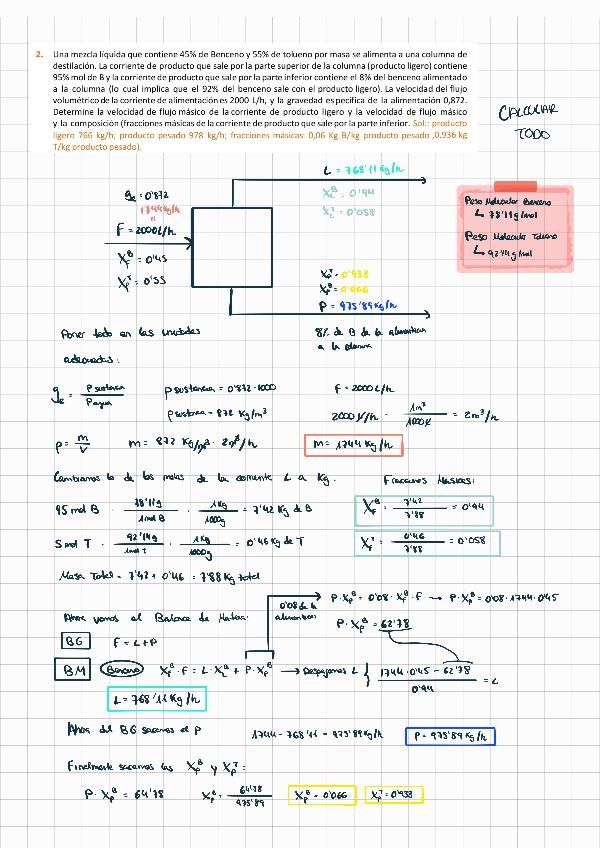 2. Una mezcla líquida que contiene 45% de Benceno y 55% de tolueno por masa se alimenta a una columna de
destilación. La corriente de producto que sale por la parte superior de la columna (producto ligero) contiene
95% mol de B y la corriente de producto que sale por la parte inferior contiene el 8% del benceno alimentado
a la columna (lo cual implica que el 92% del benceno sale con el producto ligero). La velocidad del flujo
volumétrico de la corriente de alimentación es 2000 L/h, y la gravedad específica de la alimentación 0,872.
Determine la velocidad de flujo másico de la corriente de producto ligero y la velocidad de flujo másico
y la composición (fracciones másicas de la corriente de producto que sale por la parte inferior. Sol.: producto
ligero 766 kg/h; producto pesado 978 kg/h; fracciones másicas: 0,06 Kg B/kg producto pesado ,0,936 kg
T/kg producto pesado).
CALCULAR
TODO
L = 768'11 Kg/h
X_L^B = 0'94
X_L^T = 0'058
ge = 0'872
1744 Kg/h
F = 2000 L/h
X_F^B = 0'45
X_F^T = 0'55
Peso Molecular Benceno
↳ 78'11 g/mol
Peso Molecular Tolueno
↳ 92'14 g/mol
X_P^T = 0'933
X_P^B = 0'066
P = 975'89 Kg/h
8% de B de la alimentacion
a la columna
Poner todo en las unidades
adecuadas:
ge = ρ sustancia / ρ agua
ρ sustancia = 0'872 · 1000
ρ sustancia = 872 Kg/m³
F = 2000 L/h
2000 L/h · 1m³ / 1000 L = 2 m³/h
ρ = m / V
m = 872 Kg/m³ · 2 m³/h
m = 1744 Kg/h
Cambiamos lo de las moles de la corriente L a Kg.
Fracciones Masicas:
95 mol B · 78'11g / 1mol B · 1Kg / 1000g = 7'42 Kg de B
X_F^B = 7'42 / 7'88 = 0'94
5 mol T · 92'14g / 1mol T · 1Kg / 1000g = 0'46 Kg de T
X_F^T = 0'46 / 7'88 = 0'058
Masa Total = 7'42 + 0'46 = 7'88 Kg total
Ahora vamos al Balance de Materia:
0'08 de la
alimentacion
P · X_P^B = 0'08 · X_F^B · F → P · X_P^B = 0'08 · 1744 · 0'45
P · X_P^B = 62'78
BG F = L + P
BM Benceno X_F^B · F = L · X_L^B + P · X_P^B → Despejamos L { 1744 · 0'45 - 62'78 / 0'94 = L
L = 768'11 Kg/h
Ahora del BG sacamos el P
1744 - 768'11 = 975'89 Kg/h
P = 975'89 Kg/h
Finalmente sacamos las X_P^B y X_P^T:
P · X_P^B = 64'78
X_P^B = 64'78 / 975'89
X_P^B = 0'066
X_P^T = 0'933